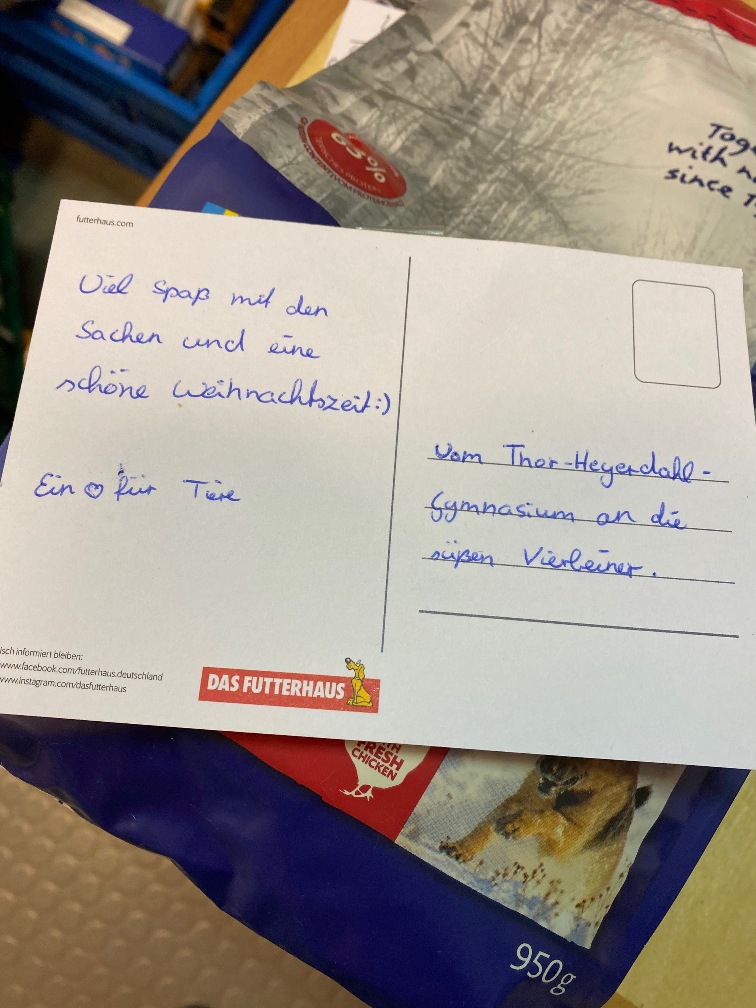 63%
Toge
with n
since 1
futterhaus.com
Viel Spaß mit den
Sachen und eine
schöne Weihnachtszeit:)
Ein ♡ für Tiere
vom Thor-Heyerdahl-
Gymnasium an die
süßen Vierbeiner.
isch informiert bleiben:
www.facebook.com/futterhaus.deutschland
www.instagram.com/dasfutterhaus
DAS FUTTERHAUS
TH
FRESH
CHICKEN
950g